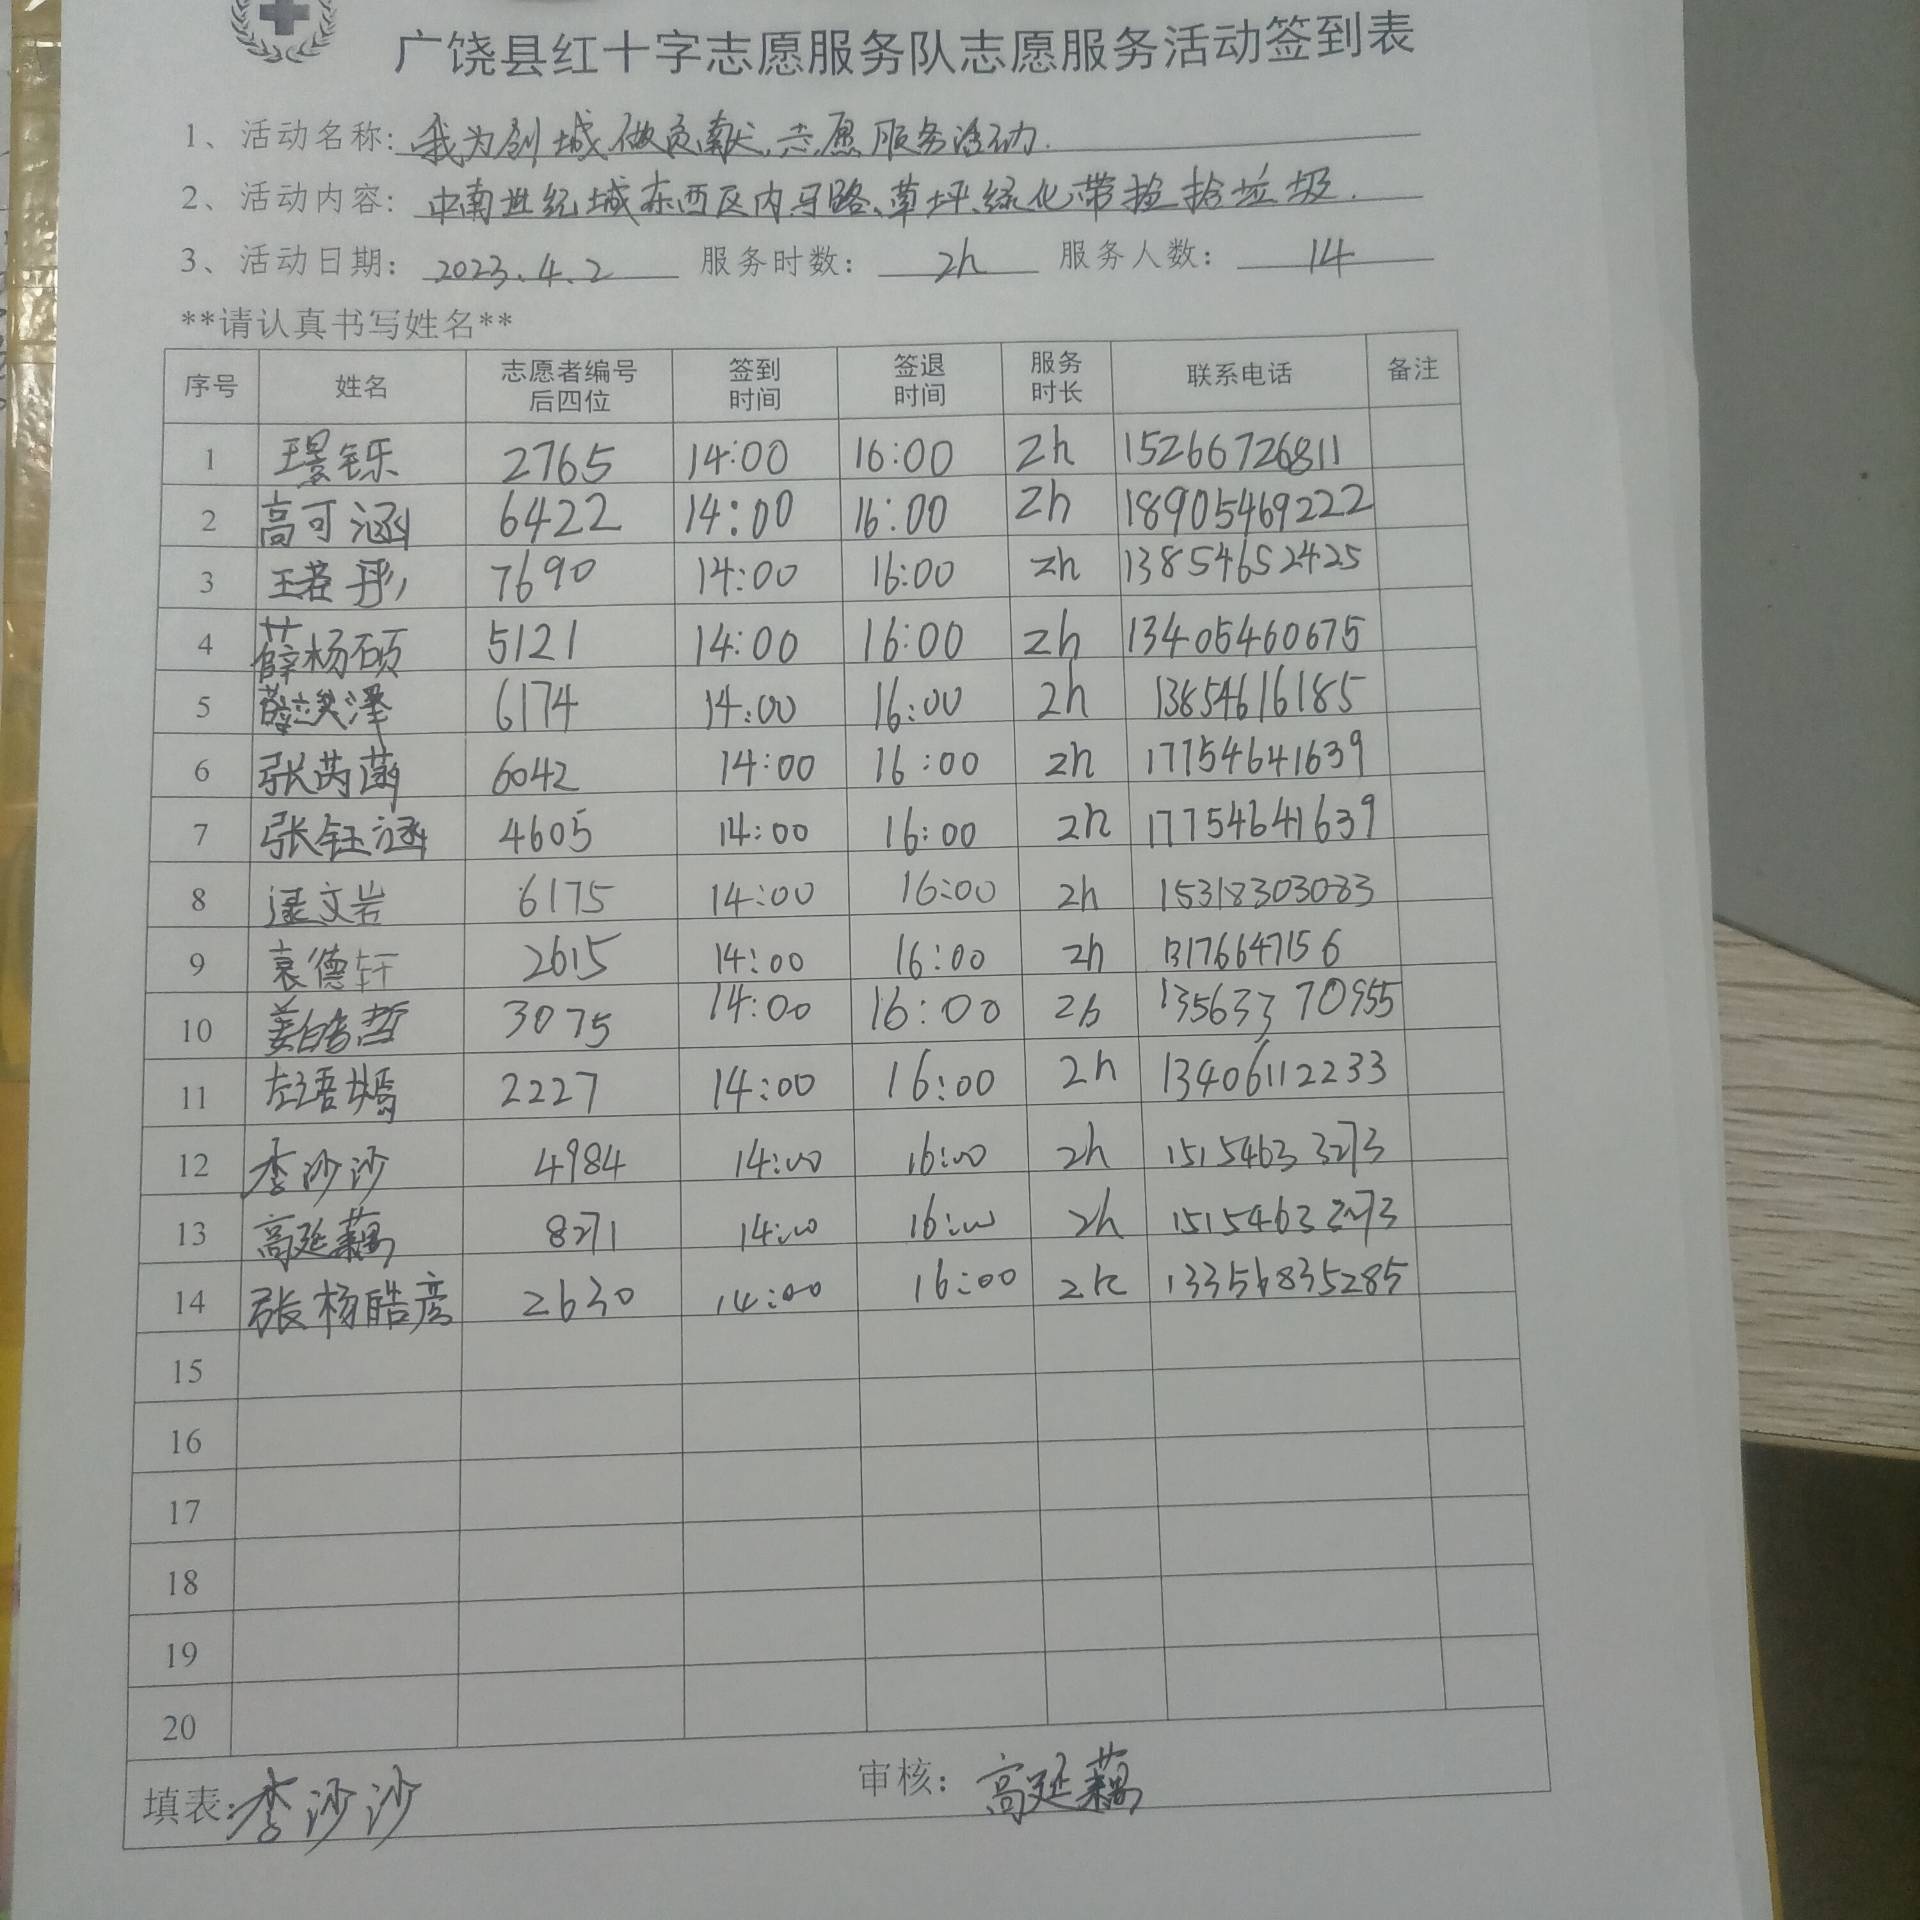 广饶县红十字志愿服务队志愿服务活动签到表
1、活动名称: 我为创城做贡献,志愿服务活动.
2、活动内容: 中南世纪城东西区内马路、草坪、绿化带捡拾垃圾.
3、活动日期: 2023.4.2 服务时数: 2h 服务人数: 14
**请认真书写姓名**
序号 姓名 志愿者编号后四位 签到时间 签退时间 服务时长 联系电话 备注
1 王昱铄 2765 14:00 16:00 2h 15266726811
2 高可涵 6422 14:00 16:00 2h 18905469222
3 王若彤 7690 14:00 16:00 2h 13854652425
4 薛杨硕 5121 14:00 16:00 2h 13405460675
5 薛竣泽 6174 14:00 16:00 2h 13854616185
6 张芮菡 6042 14:00 16:00 2h 17754641639
7 张钰涵 4605 14:00 16:00 2h 17754641639
8 文岩 6175 14:00 16:00 2h 15318303083
9 袁德轩 2615 14:00 16:00 2h 13176647156
10 姜皓哲 3075 14:00 16:00 2h 13563370955
11 左语嫣 2227 14:00 16:00 2h 13406112233
12 李沙沙 4984 14:00 16:00 2h 15154633273
13 高延藕 8271 14:00 16:00 2h 15154633273
14 张杨皓彦 2630 14:00 16:00 2h 13356835285
15
16
17
18
19
20
填表: 李沙沙 审核: 高延藕